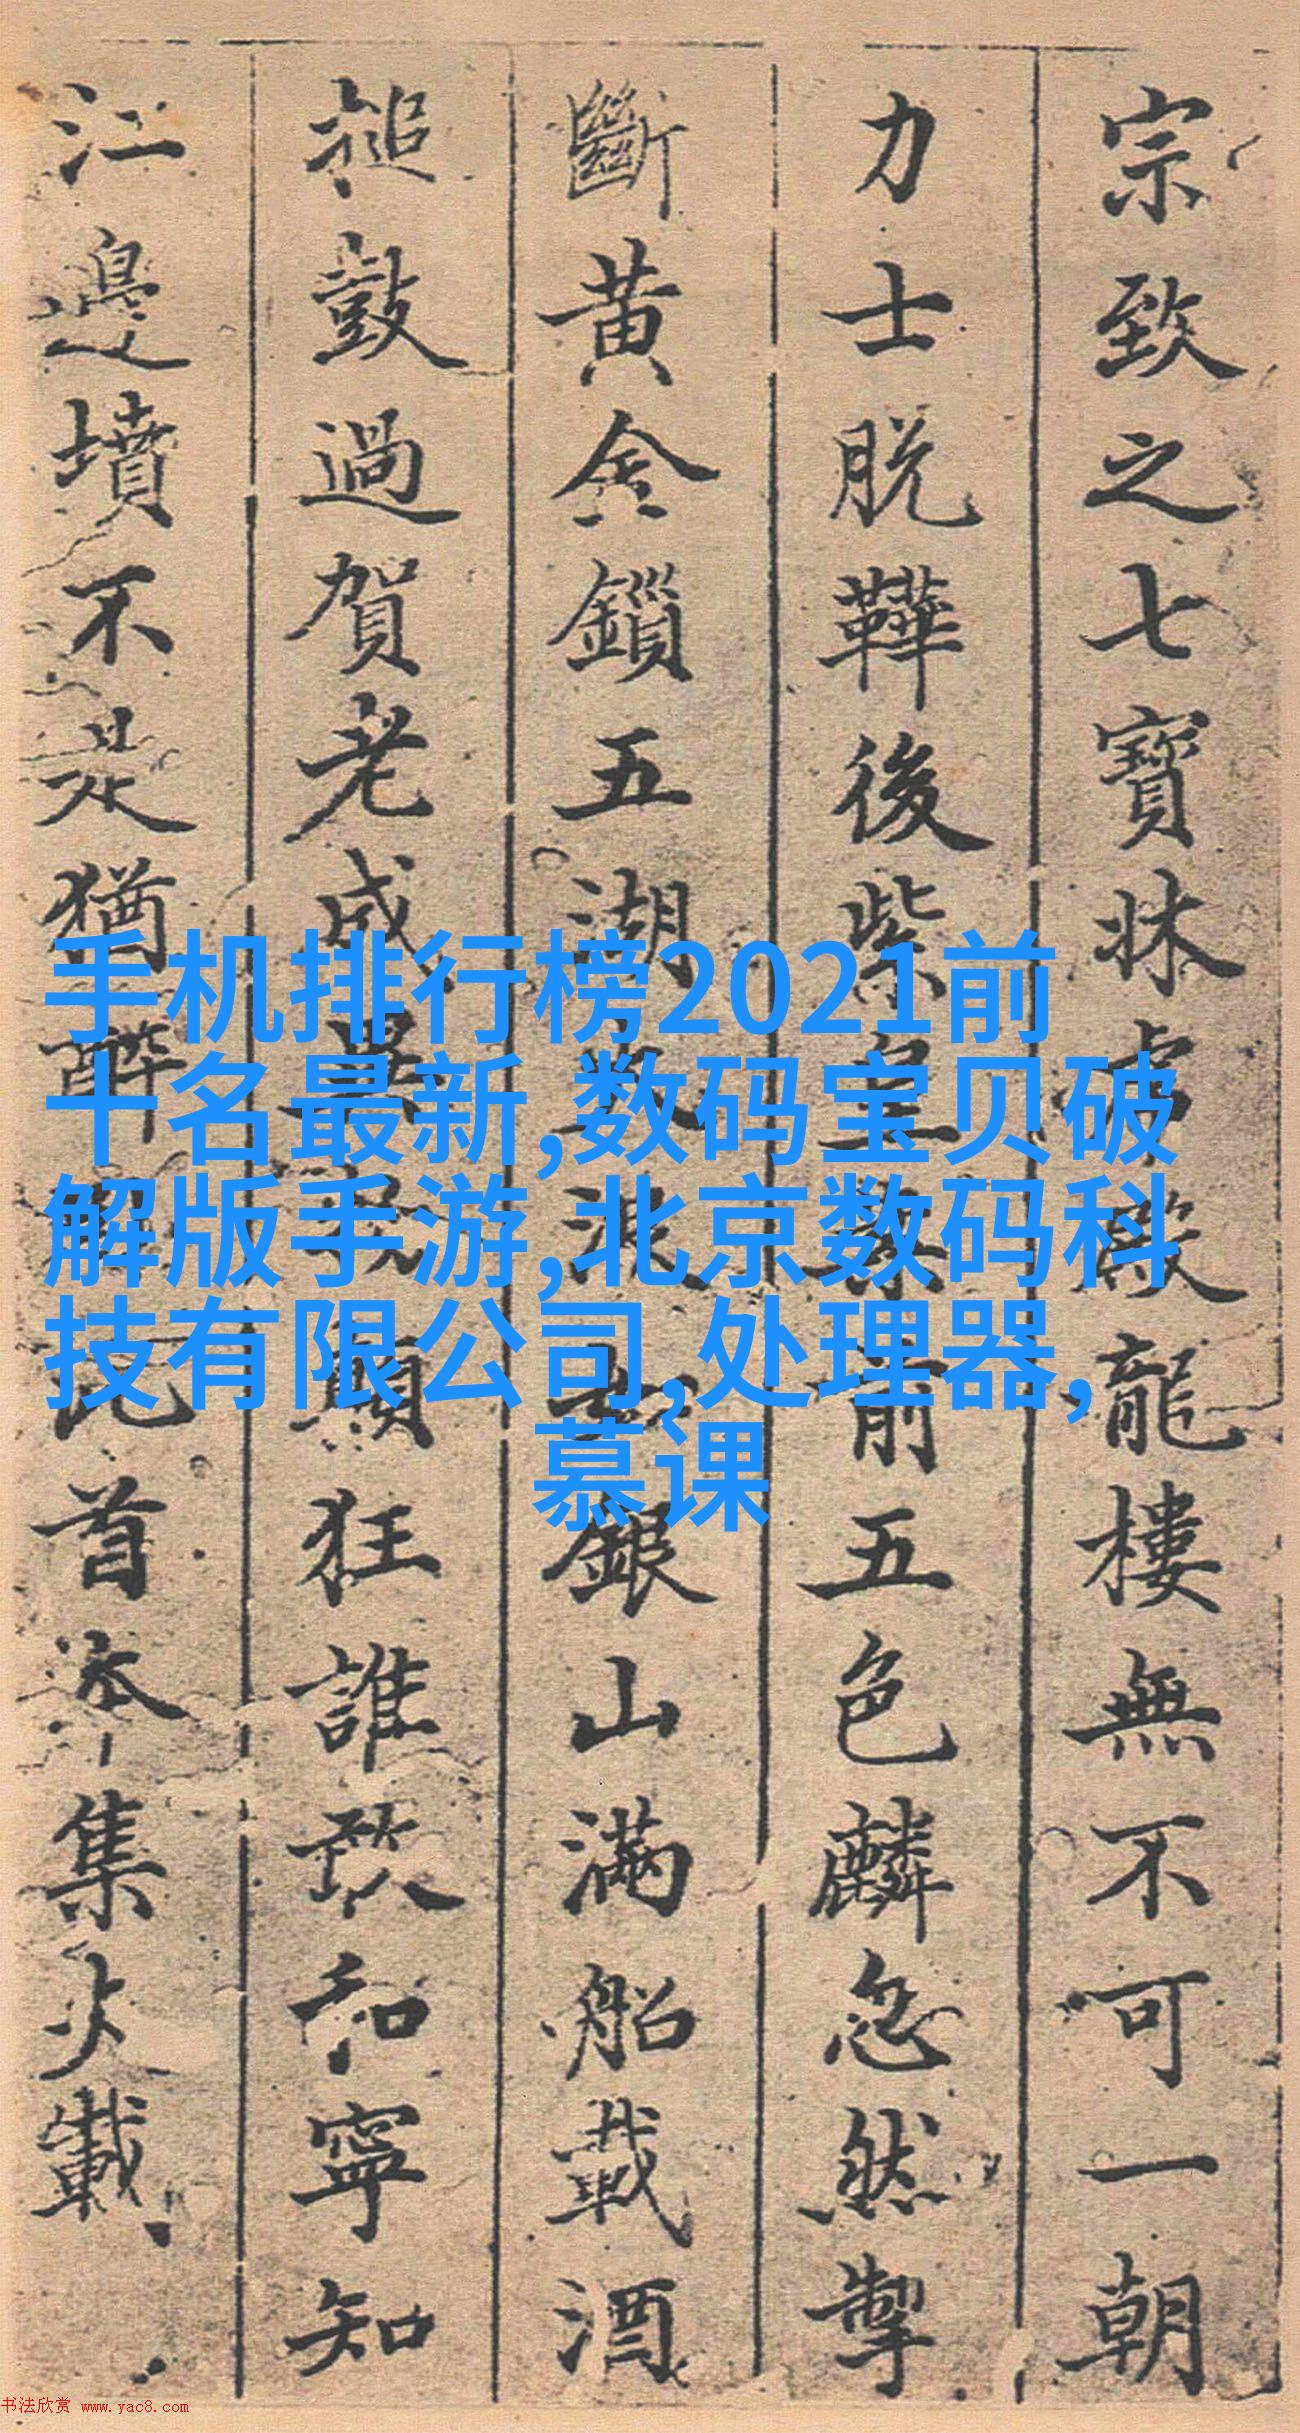 宗致之七寶牀虎殿龍樓無不可一朝
力士脫鞾後紫皇案前五色麟忽然掣
斷黃金鎖五湖大浪如銀山滿船載酒
搥鼓過賀老成異物顛狂誰敢和寧知
江邊墳不是猶醉卧此首本集失載
手机排行榜2021前
十名最新,数码宝贝破
解版手游,北京数码科
技有限公司,处理器,
慕课
书法欣赏 www.yac8.com